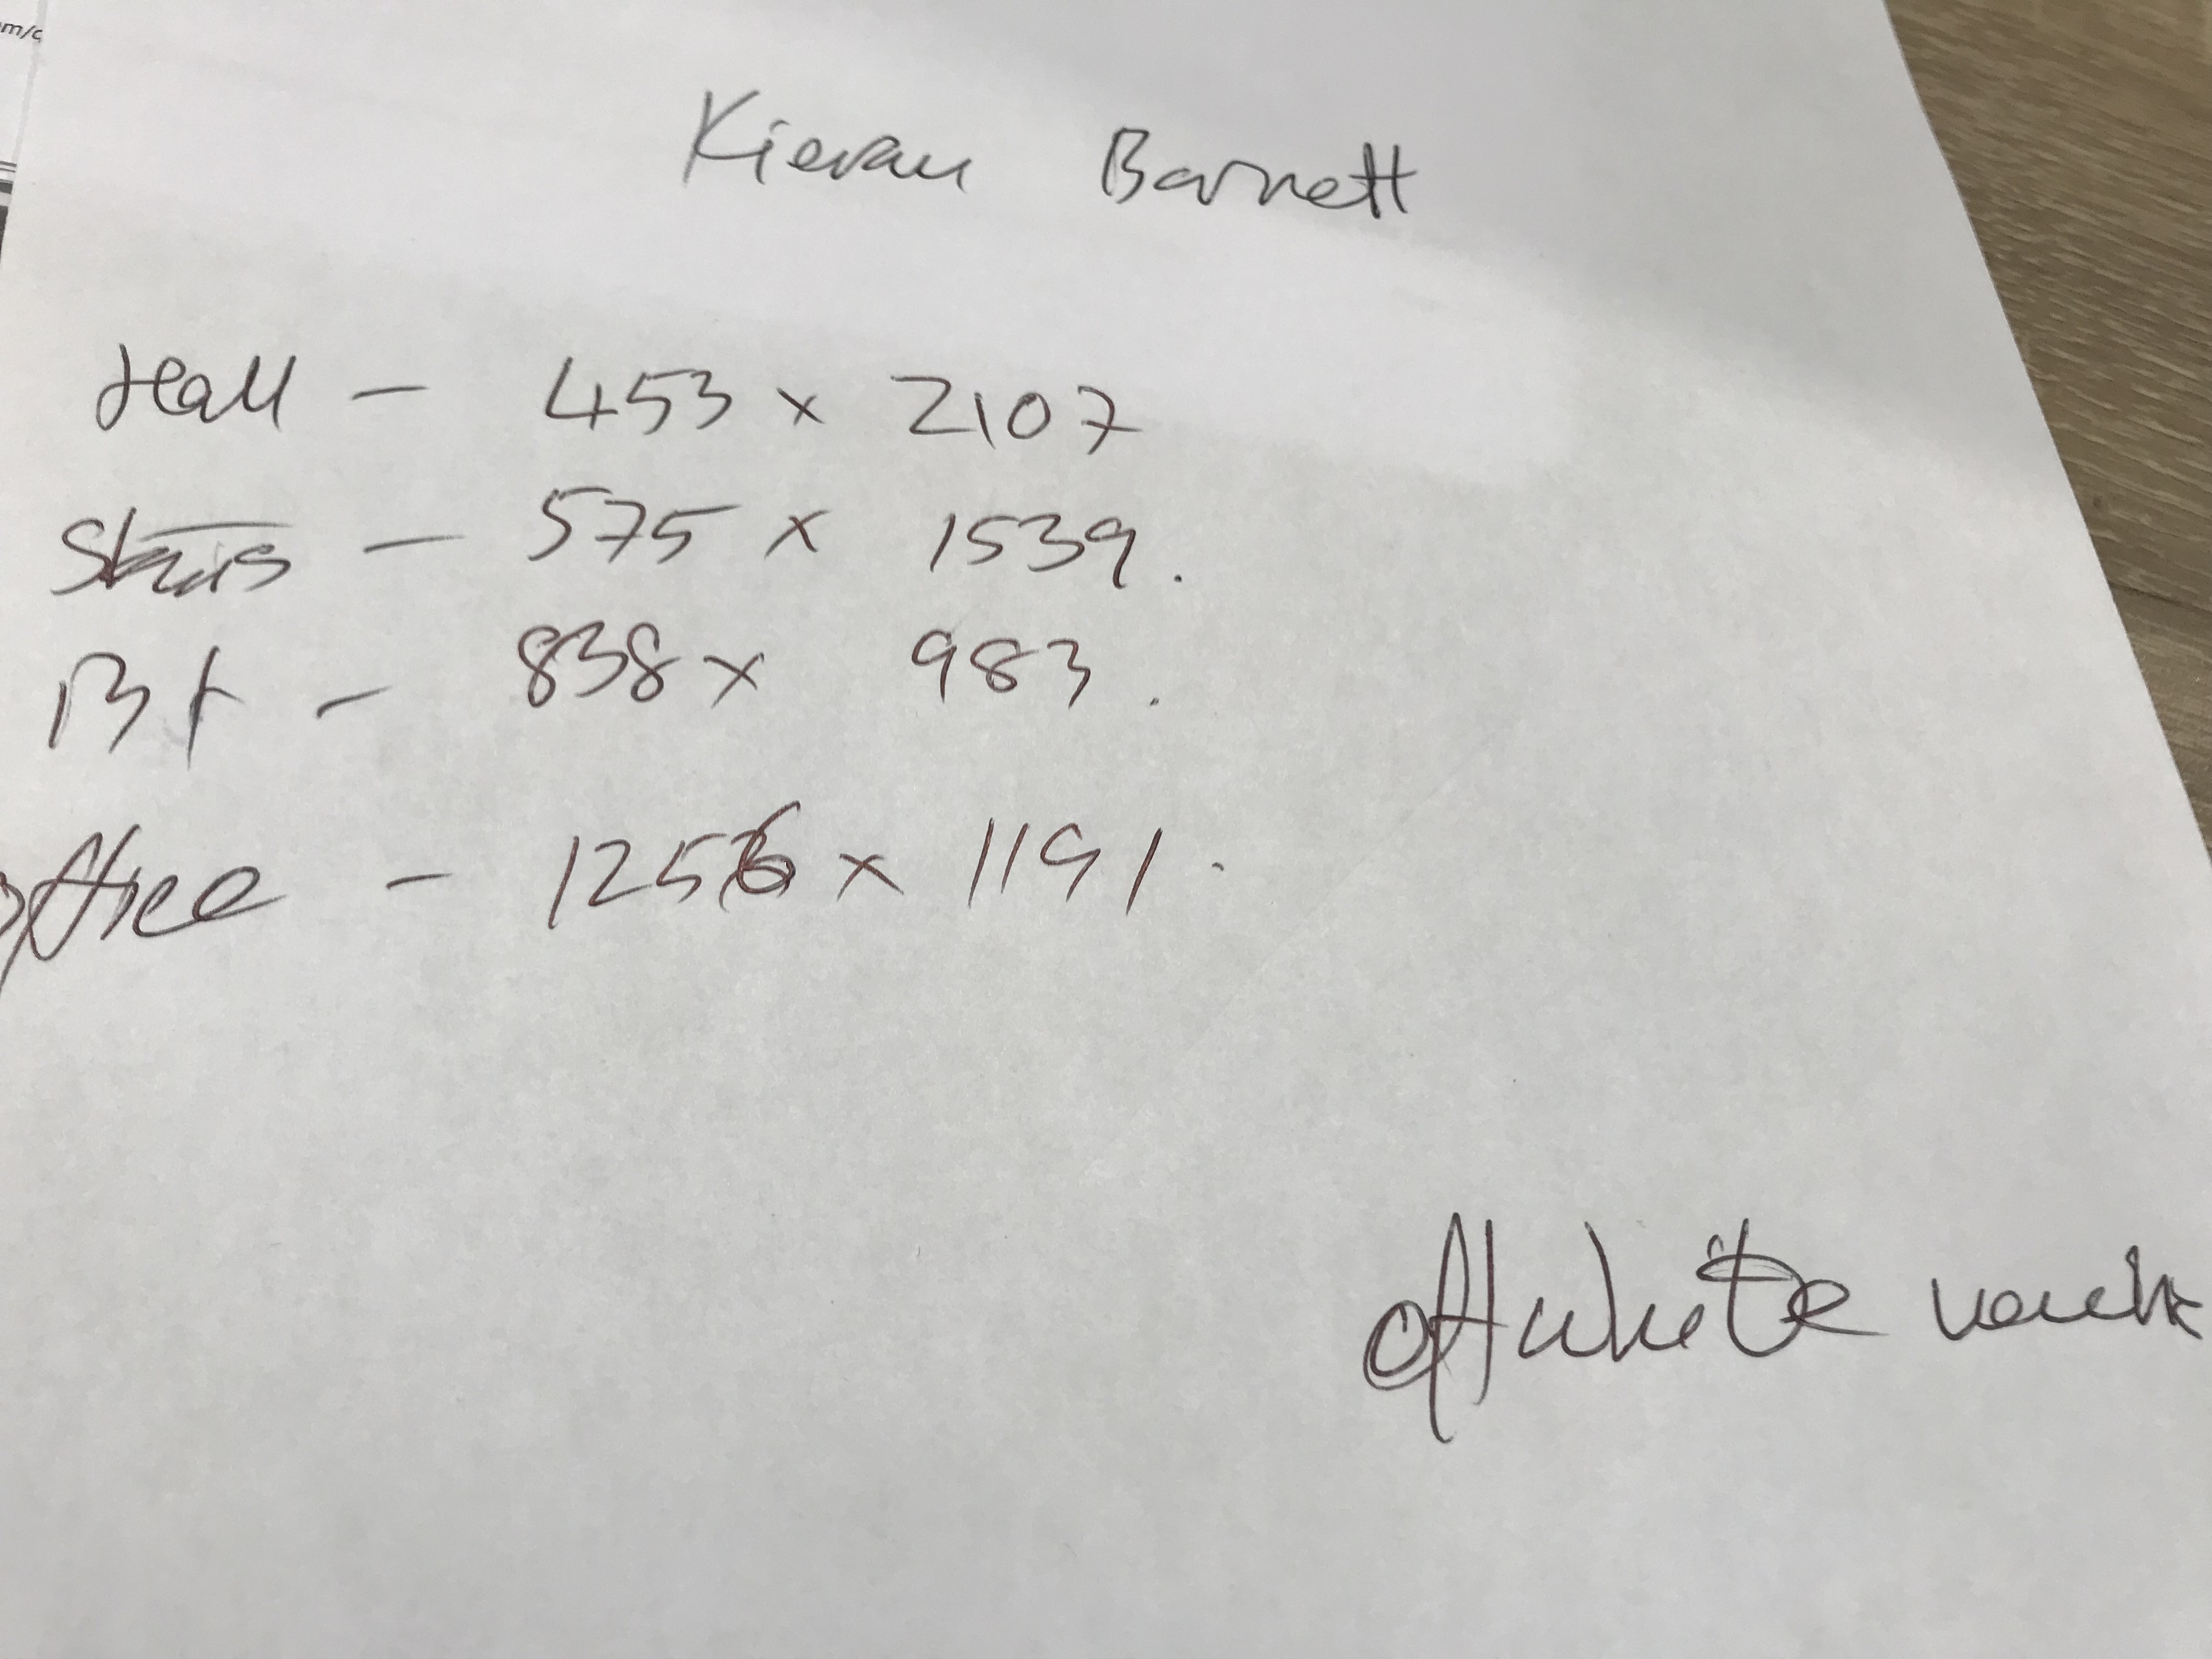 m/c
Kieran Barnett
Hall - 453 x 2107
Stairs - 575 x 1539.
838 x 983.
Office - 1256 x 1191.
Off white